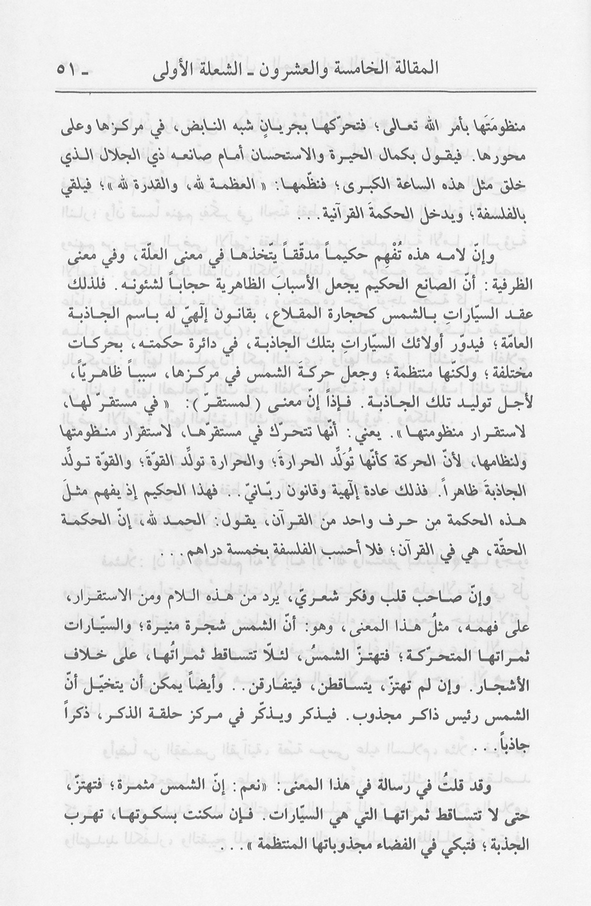 المقالة الخامسة والعشرون ـ الشعلة الأولى
ـ ٥١
منظومَتَها بأمر الله تعالى؛ فتحرّكها بجريانٍ شبه النابض، في مركزها وعلى
محورها. فيقول بكمال الحيرة والاستحسان أمام صانعه ذي الجلال الذي
خلق مثل هذه الساعة الكبرى؛ فنظّمها: «العظمة لله، والقدرة لله»؛ فيلقي
بالفلسفة؛ ويدخل الحكمةَ القرآنية...
وإنّ لامه هذه تُفْهم حكيماً مدقّقاً يتّخذها في معنى العلّة، وفي معنى
الظرفية: أنّ الصانع الحكيم يجعل الأسبابَ الظاهرية حجاباً لشئونه. فلذلك
عقد السيّاراتِ بالشمس كحجارة المقلاع، بقانون إلٓهيّ له باسم الجاذبة
العامّة؛ فيدوّر أولائك السيّاراتِ بتلك الجاذبة، في دائرة حكمته، بحركات
مختلفة؛ ولكنّها منتظمة؛ وجعل حركة الشمس في مركزها، سبباً ظاهريّاً،
لأجل توليد تلك الجاذبة. فإذاً إنّ معنى (لمستقرّ): «في مستقرّ لها،
لاستقرار منظومتها». يعني: أنّها تتحرّك في مستقرّها، لاستقرار منظومتها
ولنظامها، لأنّ الحركة كأنّها تُوَلِّد الحرارةَ؛ والحرارة تولِّد القوّةَ؛ والقوّة تولِّد
الجاذبةَ ظاهراً. فذلك عادة إلٓهية وقانون ربّانيّ.. فهذا الحكيم إذ يفهم مثلَ
هذه الحكمة من حرف واحد من القرآن، يقول: الحمد لله، إنّ الحكمة
الحقّة، هي في القرآن؛ فلا أحسب الفلسفة بخمسة دراهم...
وإنّ صاحب قلب وفكر شعريّ، يرد من هذه اللام ومن الاستقرار،
على فهمه، مثلُ هذا المعنى، وهو: أنّ الشمس شجرة منيرة؛ والسيّارات
ثمراتها المتحرّكة؛ فتهتزّ الشمسُ، لئلّا تتساقط ثمراتُها، على خلاف
الأشجار. وإن لم تهتزّ، يتساقطن، فيتفارقن.. وأيضاً يمكن أن يتخيّل أنّ
الشمس رئيس ذاكر مجذوب. فيذكر ويذكّر في مركز حلقة الذكر، ذكراً
جاذباً...
وقد قلتُ في رسالة في هذا المعنى: «نعم: إنّ الشمس مثمرة؛ فتهتزّ،
حتى لا تتساقط ثمراتها التي هي السيّارات. فإن سكنت بسكوتها، تهرب
الجذبة؛ فتبكي في الفضاء مجذوباتها المنتظمة»...